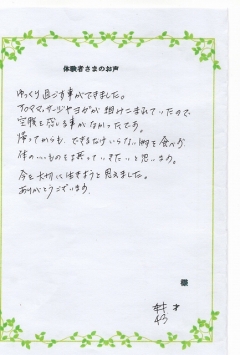 体験者さまのお声
ゆっくり過ごす事ができました。
アロママッサージやヨガが組みこまれていたので、
空腹を感じる事がなかったです。
帰ってからも、できるだけいらない物を食べず、
体のいいものを摂っていきたいと思います。
今を大切に生きようと思えました。
ありがとうございます。
様
才
43